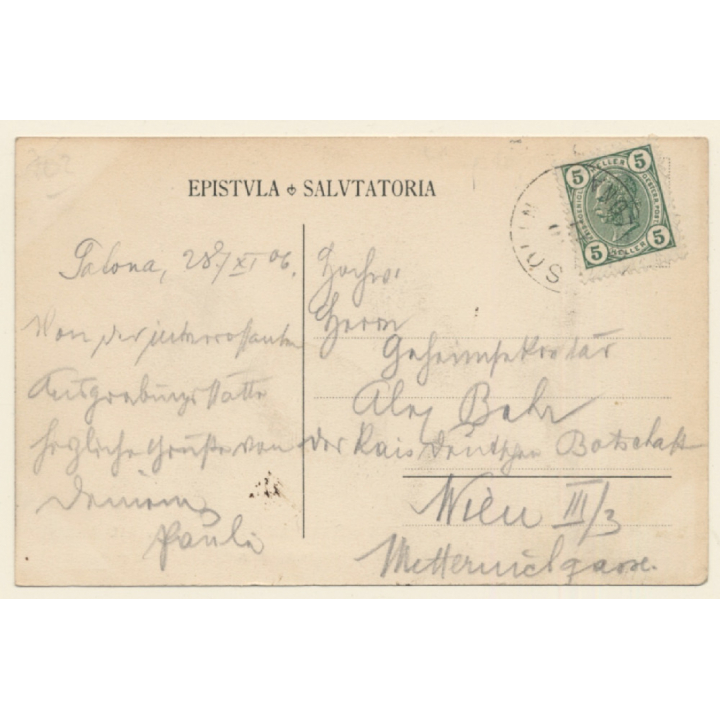 EPISTVLA SALVTATORIA
5 HELLER 5
5 HELLER 5
Salona, 28./XI 06.
Von der interessanten
Ausgrabungsstätte
herzliche Grüße von
Deinem
Pauli
Hochw.
Herrn
Geheimsekretär
Alex Behr
der Kais Deutschen Botschaft
Wien III/3
Metternichgasse.